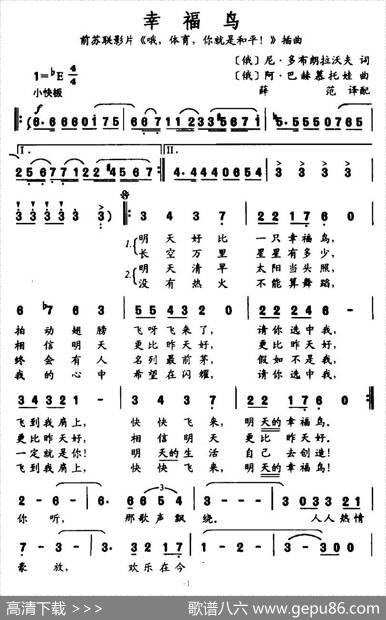 幸福鸟
前苏联影片《哦，体育，你就是和平！》插曲
〔俄〕尼·多布朗拉沃夫 词
〔俄〕阿·巴赫慕托娃 曲
薛 范 译配
1=♭E 4/4
小快板
f
6·6660175 5·5550765
I. II.
3 4 3 7 2 2 1 7 6 0
1. 明天好比 一只幸福鸟，
长空万里 星星有多少，
2. 明天清早 太阳当头照，
没有热火 不能算舞蹈，
6 7 ♭6 3 5 5 4 3 2 0 2 2 1 7 6 0
拍动翅膀 飞呀飞来了， 请你选中我，
相信明天 更比昨天好， 更比昨天好，
终会有人 名列最前茅， 假如不是我，
我的心中 希望在闪耀， 请你选中我，
飞到我肩上， 快快飞来， 明天的幸福鸟。
更比昨天好， 相信明天 更比昨天好。
一定就是你！ 明天的生活 自己去创造！
飞到我肩上， 快快飞来， 明天的幸福鸟！
2 - 6 - 6 6 5 4 3 - 3 0 3 3 2 1
你听， 那歌声飘绕。 人人热情
豪放， 欢乐在今
-1
高清下载 >>>
歌谱八六 www.gepu86.com